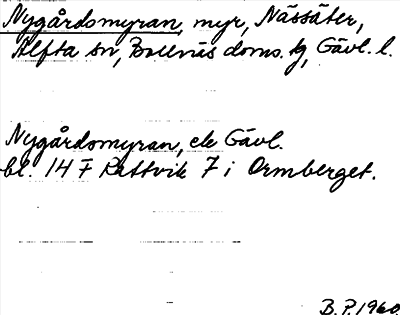 Nygårdsmyran, myr, Nässäter,
Alfta sn, Bollnäs doms. hg, Gävl. l.
Nygårdsmyran, ek Gävl.
bl. 14 F Rättvik 7 i Ormberget.
B. P. 1960.